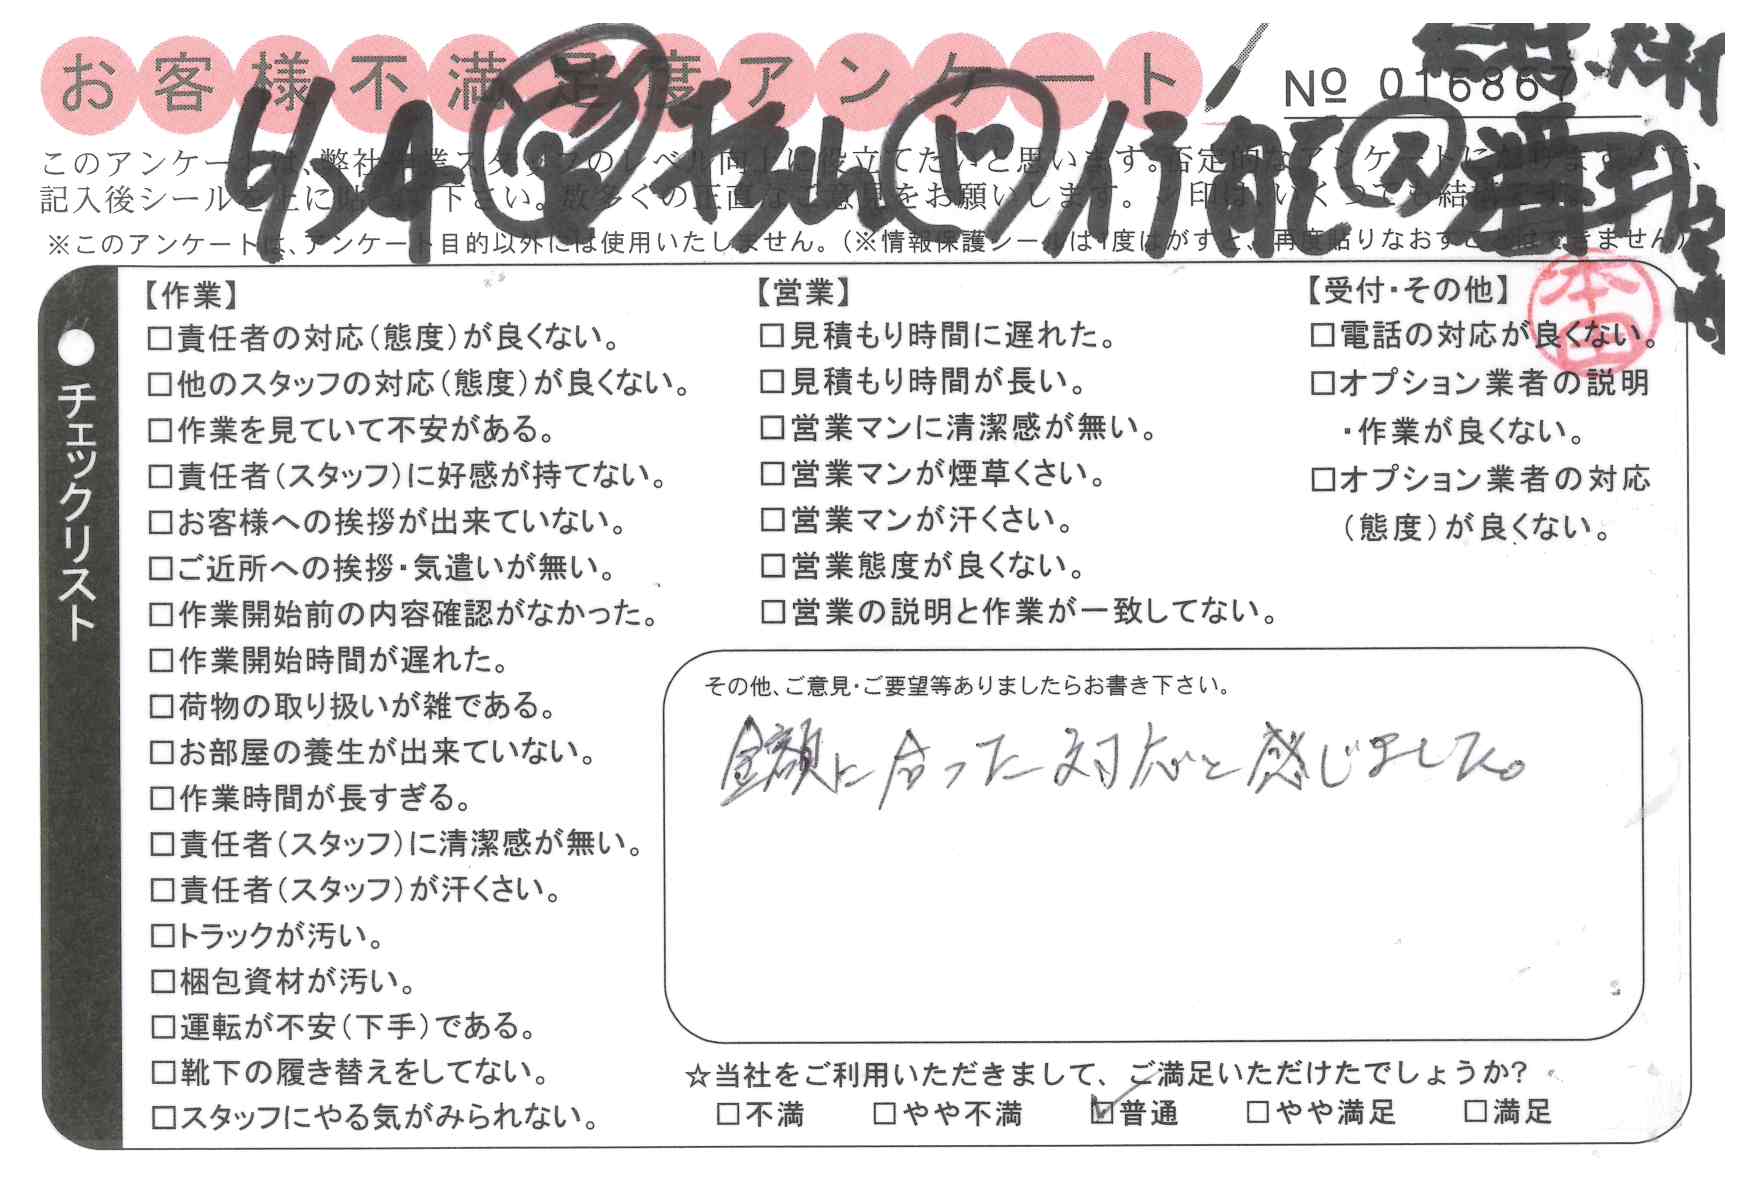 お客様不満足度アンケート
№ 016867
6/24 杉山 行龍
このアンケートは、弊社作業スタッフのレベル向上に役立てたいと思います。否定的なアンケートになりますので、
記入後シールを上に貼って下さい。数多くの正直なご意見をお願いします。✓印は、いくつでも結構です。
※このアンケートは、アンケート目的以外には使用いたしません。(※情報保護シールは1度はがすと、再度貼りなおすことはできません)
本田
●チェックリスト
【作業】
□責任者の対応(態度)が良くない。
□他のスタッフの対応(態度)が良くない。
□作業を見ていて不安がある。
□責任者(スタッフ)に好感が持てない。
□お客様への挨拶が出来ていない。
□ご近所への挨拶・気遣いが無い。
□作業開始前の内容確認がなかった。
□作業開始時間が遅れた。
□荷物の取り扱いが雑である。
□お部屋の養生が出来ていない。
□作業時間が長すぎる。
□責任者(スタッフ)に清潔感が無い。
□責任者(スタッフ)が汗くさい。
□トラックが汚い。
□梱包資材が汚い。
□運転が不安(下手)である。
□靴下の履き替えをしてない。
□スタッフにやる気がみられない。
【営業】
□見積もり時間に遅れた。
□見積もり時間が長い。
□営業マンに清潔感が無い。
□営業マンが煙草くさい。
□営業マンが汗くさい。
□営業態度が良くない。
□営業の説明と作業が一致してない。
【受付・その他】
□電話の対応が良くない。
□オプション業者の説明
・作業が良くない。
□オプション業者の対応
(態度)が良くない。
その他、ご意見・ご要望等ありましたらお書き下さい。
金額に合った対応と感じました。
☆当社をご利用いただきまして、ご満足いただけたでしょうか?
□不満 □やや不満 ☑普通 □やや満足 □満足